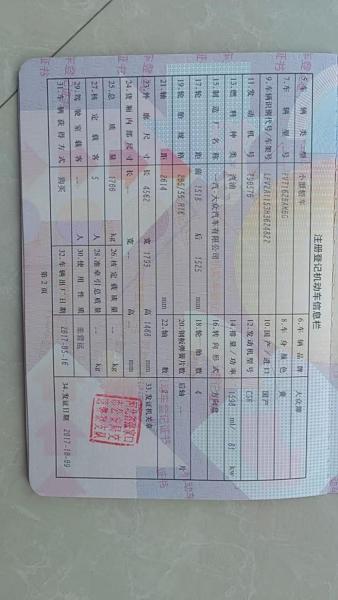 注册登记机动车信息栏
5.车辆类型 小型轿车 6.车辆品牌 大众牌
7.车辆型号 8.车身颜色 黄
9.车辆识别代号/车架号 10.国产/进口 国产
11.发动机号 12.发动机型号 CSR
13.燃料种类 汽油 14.排量/功率 1598 ml/ 81 kw
15.制造厂名称 一汽-大众汽车有限公司 16.转向形式 方向盘
17.轮距 前 1518 后 1525 mm 18.轮胎数 4
19.轮胎规格 205/55 R16 20.钢板弹簧片数 后轴 -- 片
21.轴距 2614 mm 22.轴数
23.外廓尺寸 长 4562 宽 1793 高 1468 mm 33.发证机关章
24.货厢内部尺寸 长 -- 宽 -- 高 -- mm
25.总质量 1760 kg 26.核定载质量 -- kg
27.核定载客 5 人 28.准牵引总质量 -- kg
29.驾驶室载客 -- 人 30.使用性质
31.车辆获得方式 购买 32.车辆出厂日期 2017-05-16 34.发证日期 2017-10-09
第2页